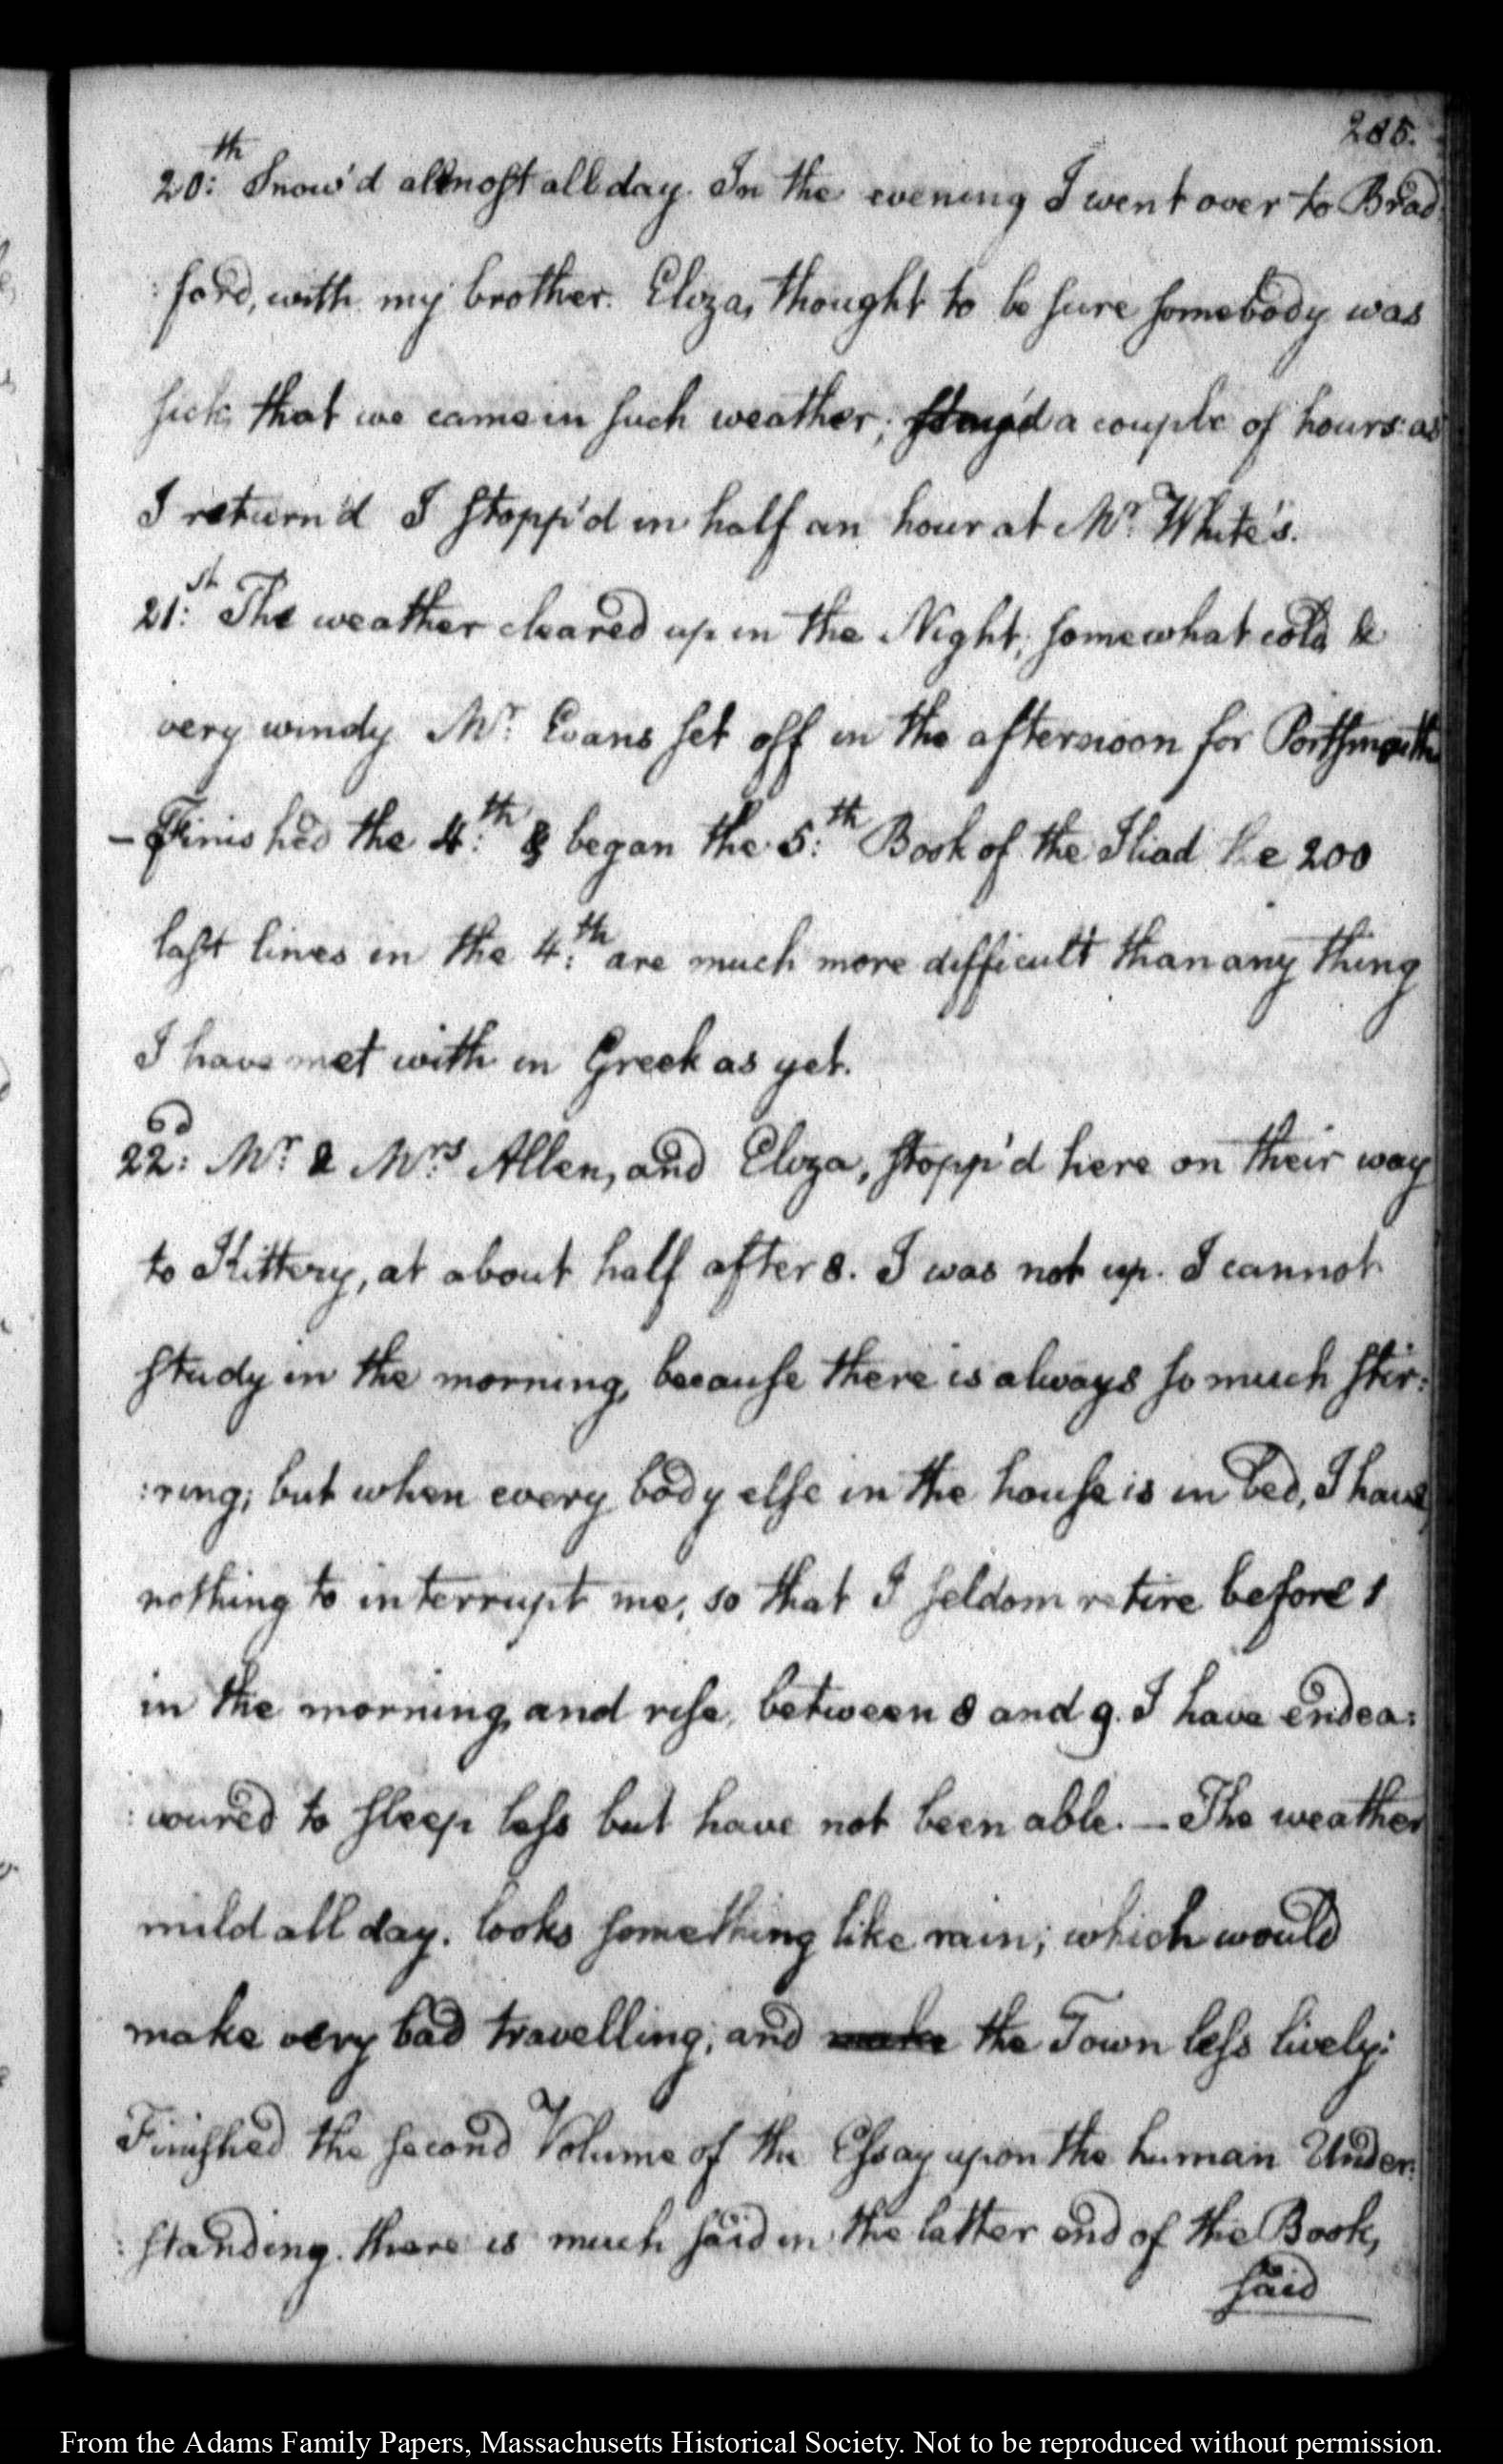 285.
20:th Snow'd allmost all day. In the evening I went over to Brad
:ford, with my brother. Eliza, thought to be sure somebody was
sick, that we came in such weather; stay'd a couple of hours: as
I return'd I stopp'd in half an hour at Mr. White's.
21:st The weather cleared up in the Night; somewhat cold, &
very windy Mr. Evans set off in the afternoon for Portsmouth
— Finished the 4:th & began the 5:th Book of the Iliad the 200
last lines in the 4:th are much more difficult than any thing
I have met with in Greek as yet.
22:d Mr. & Mrs. Allen, and Eliza, stopp'd here on their way
to Kittery, at about half after 8. I was not up. I cannot
study in the morning, because there is always so much stir:
:ring; but when every body else in the house is in bed, I have
nothing to interrupt me; so that I seldom retire before 1
in the morning, and rise, between 8 and 9. I have endea:
:voured to sleep less but have not been able. — The weather
mild all day. looks something like rain; which would
make very bad travelling; and make the Town less lively:
Finished the second Volume of the Essay upon the human Under:
:standing. there is much said in the latter end of the Book,
said
From the Adams Family Papers, Massachusetts Historical Society. Not to be reproduced without permission.